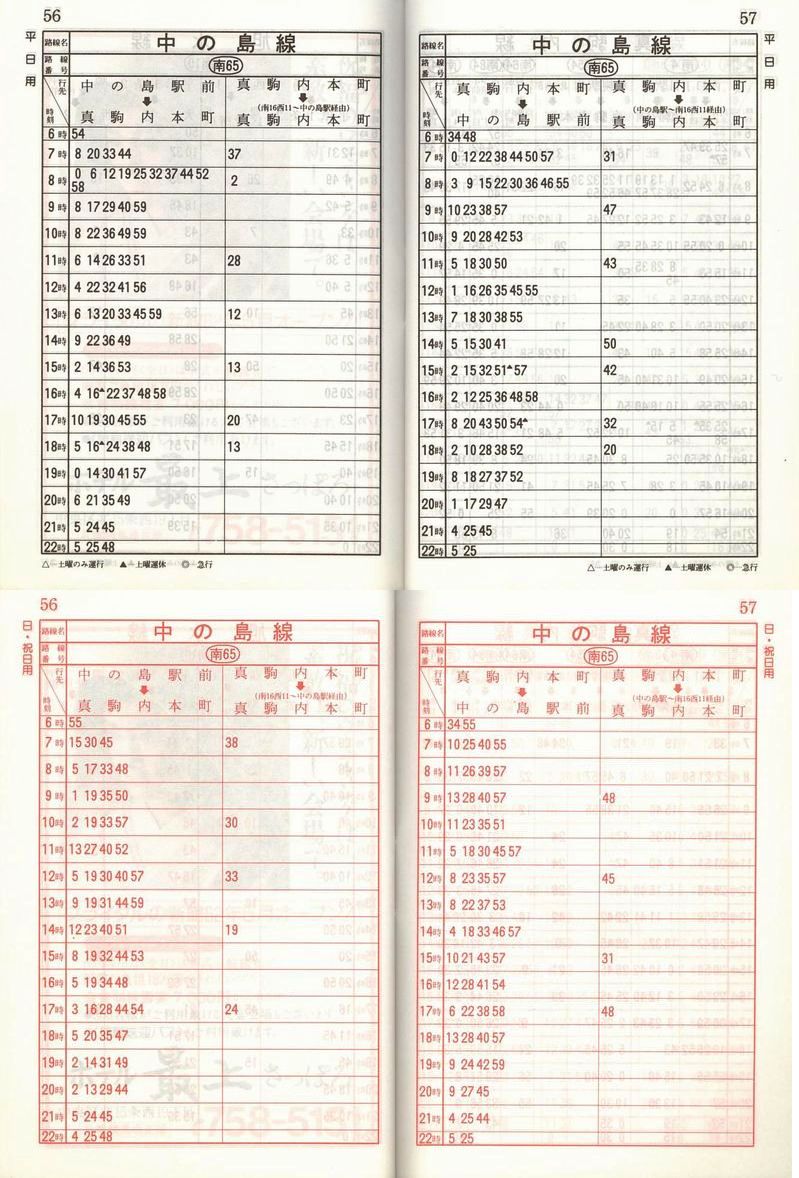 56
平日用
路線名 中の島線
路線番号 南65
行先 時刻 中の島駅前 ⬇ 真駒内本町 真駒内本町 ⬇ (南16西11〜中の島駅経由) 真駒内本町
6時 54
7時 8 20 33 44 37
8時 0 6 12 19 25 32 37 44 52
58 2
9時 8 17 29 40 59
10時 8 22 36 49 59
11時 6 14 26 33 51 28
12時 4 22 32 41 56
13時 6 13 20 33 45 59 12
14時 9 22 36 49
15時 2 14 36 53 13
16時 4 16▲ 22 37 48 58
17時 10 19 30 45 55 20
18時 5 16▲ 24 38 48 13
19時 0 14 30 41 57
20時 6 21 35 49
21時 5 24 45
22時 5 25 48
△…土曜のみ運行 ▲…土曜運休 ◎…急行
57
平日用
路線名 中の島線
路線番号 南65
行先 時刻 真駒内本町 ⬇ 中の島駅前 真駒内本町 ⬇ (中の島駅〜南16西11経由) 真駒内本町
6時 34 48
7時 0 12 22 38 44 50 57 31
8時 3 9 15 22 30 36 46 55
9時 10 23 38 57 47
10時 9 20 28 42 53
11時 5 18 30 50 43
12時 1 16 26 35 45 55
13時 7 18 30 38 55
14時 5 15 30 41 50
15時 2 15 32 51▲ 57 42
16時 2 12 25 36 48 58
17時 8 20 43 50 54▲ 32
18時 2 10 28 38 52 20
19時 8 18 27 37 52
20時 1 17 29 47
21時 4 25 45
22時 5 25
△…土曜のみ運行 ▲…土曜運休 ◎…急行
56
日・祝日用
路線名 中の島線
路線番号 南65
行先 時刻 中の島駅前 ⬇ 真駒内本町 真駒内本町 ⬇ (南16西11〜中の島駅経由) 真駒内本町
6時 55
7時 15 30 45 38
8時 5 17 33 48
9時 1 19 35 50
10時 2 19 33 57 30
11時 13 27 40 52
12時 5 19 30 40 57 33
13時 9 19 31 44 59
14時 12 23 40 51 19
15時 8 19 32 44 53
16時 5 19 34 48
17時 3 16 28 44 54 24
18時 5 20 35 47
19時 2 14 31 49
20時 2 13 29 44
21時 5 24 45
22時 4 25 48
57
日・祝日用
路線名 中の島線
路線番号 南65
行先 時刻 真駒内本町 ⬇ 中の島駅前 真駒内本町 ⬇ (中の島駅〜南16西11経由) 真駒内本町
6時 34 55
7時 10 25 40 55
8時 11 26 39 57
9時 13 28 40 57 48
10時 11 23 35 51
11時 5 18 30 45 57
12時 8 23 35 57 45
13時 8 22 37 53
14時 4 18 33 46 57
15時 10 21 43 57 31
16時 12 28 41 54
17時 6 22 38 58 48
18時 13 28 40 57
19時 9 24 42 59
20時 9 27 45
21時 4 25 44
22時 5 25